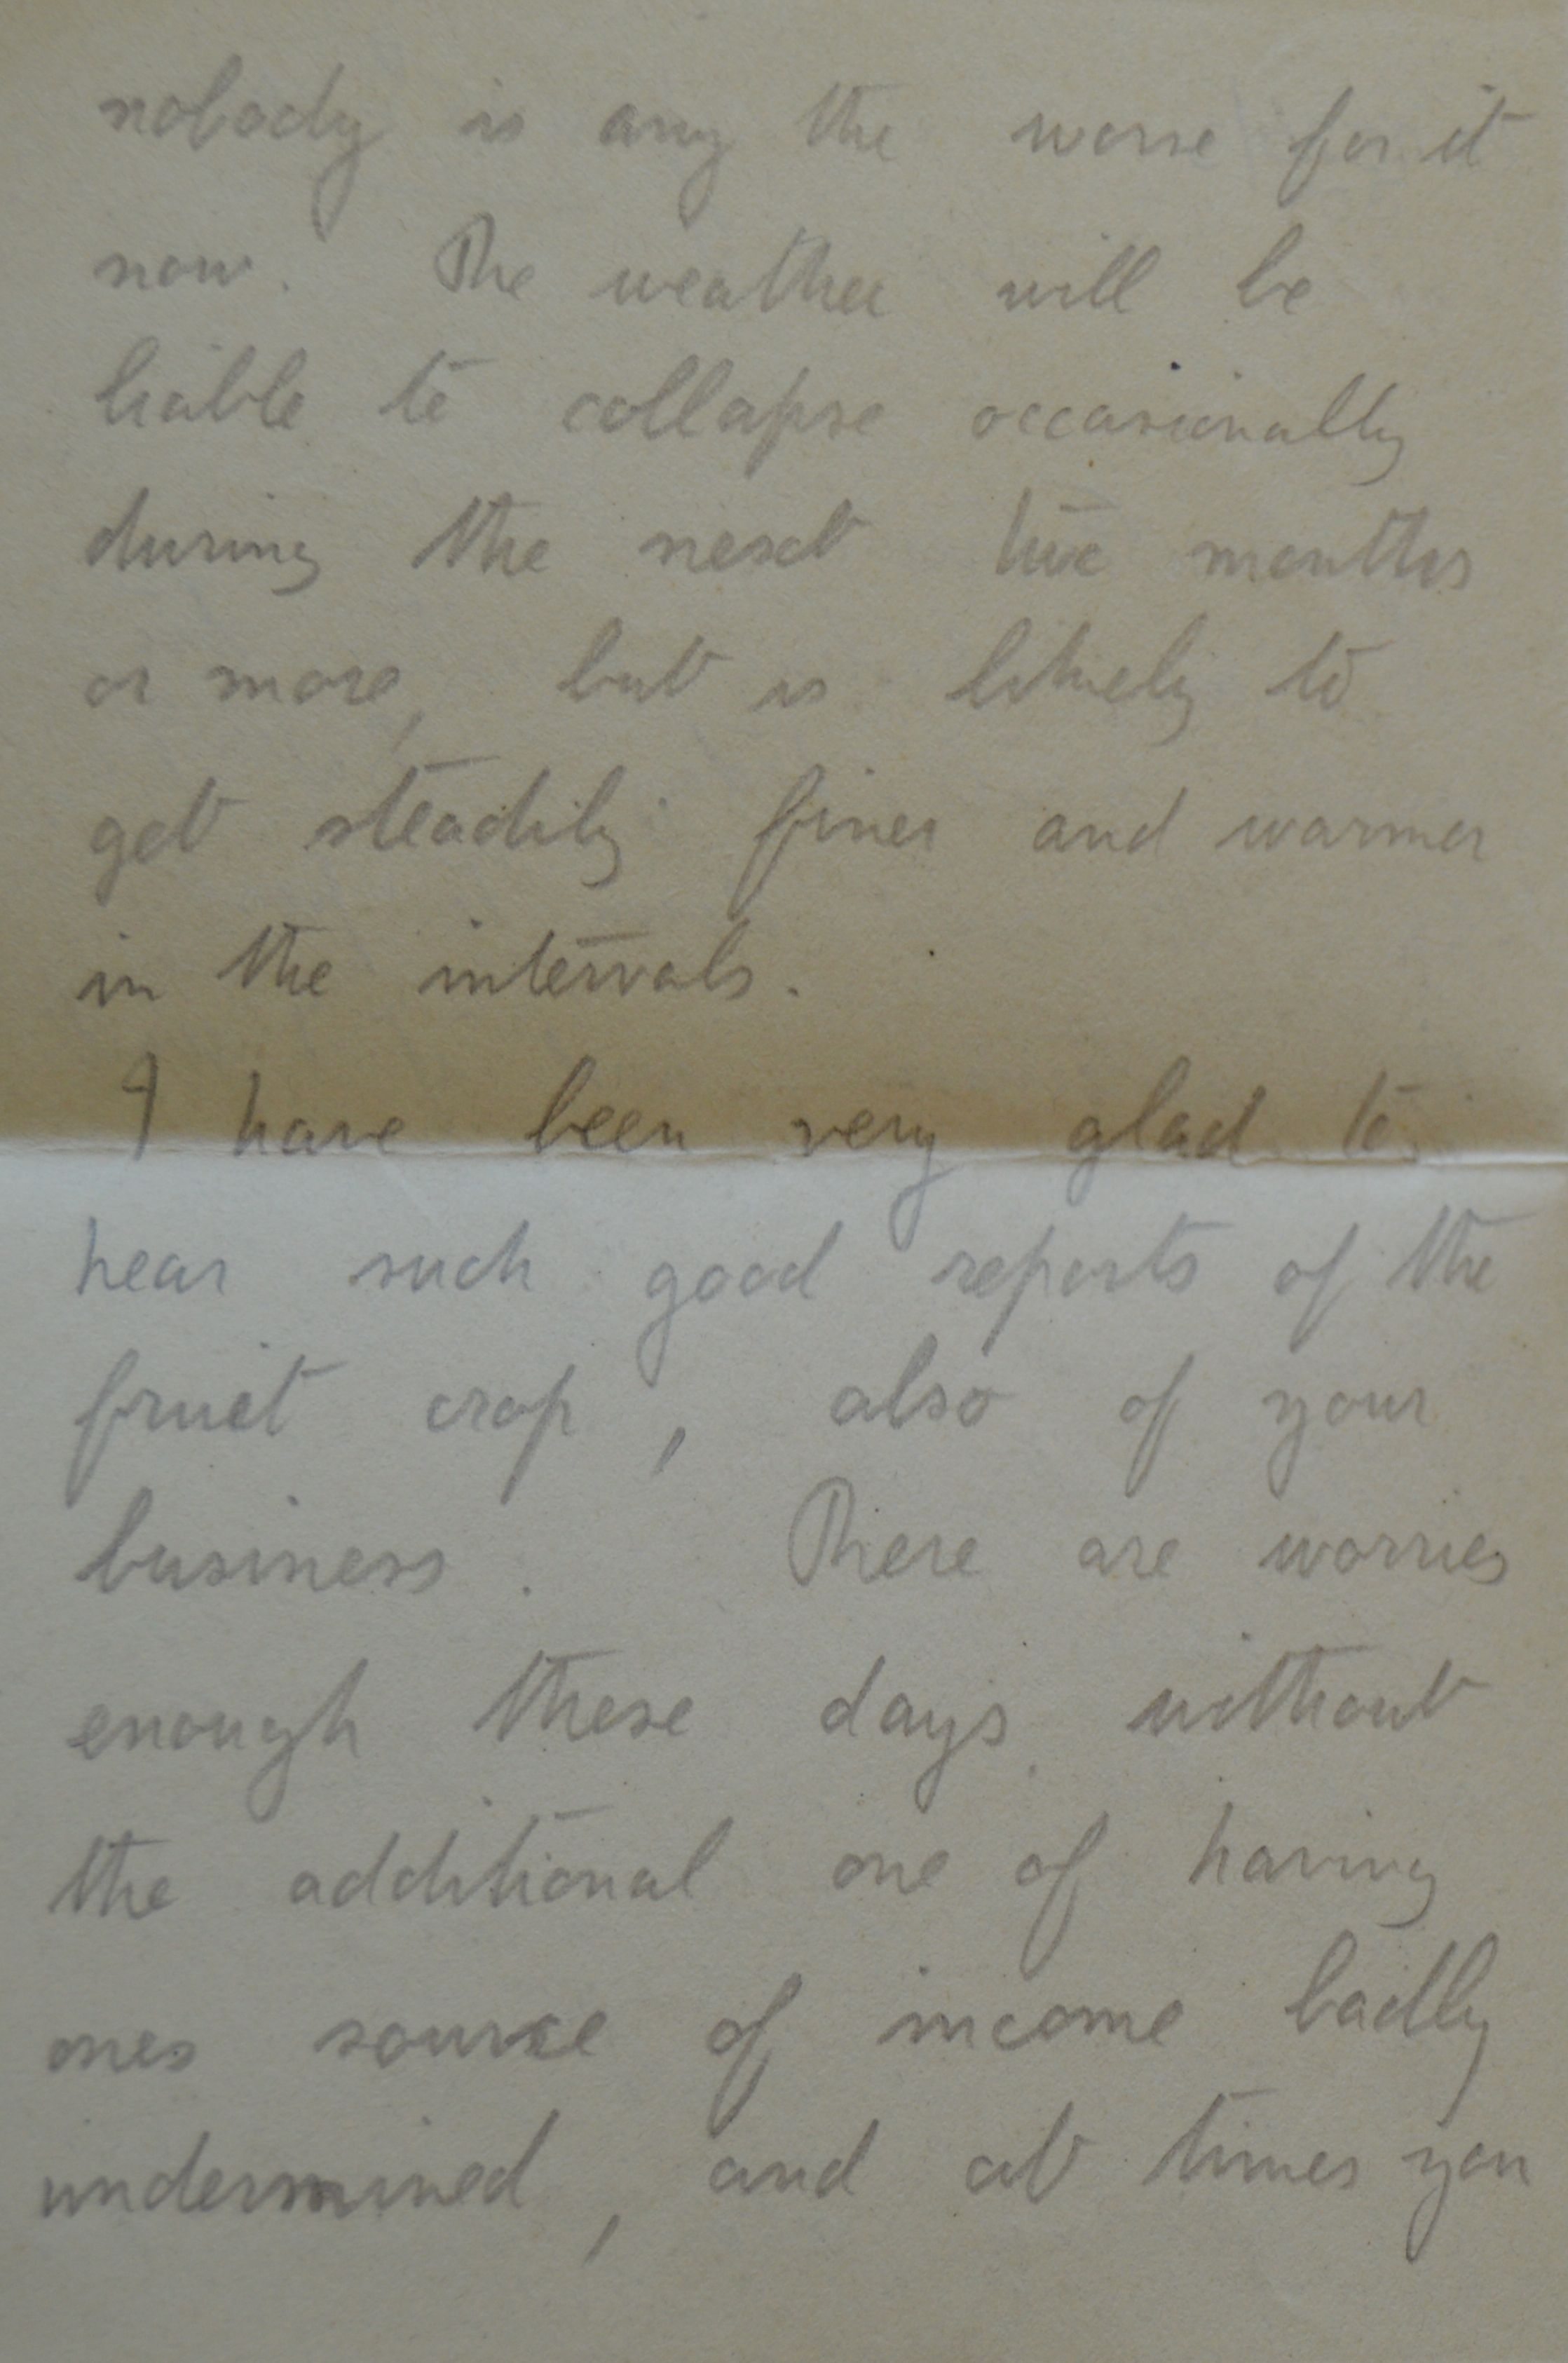 nobody is any the worse for it
now. The weather will be
liable to collapse occasionally
during the next two months
or more, but is likely to
get steadily finer and warmer
in the intervals.
I have been very glad to
hear such good reports of the
fruit crop, also of your
business. There are worries
enough these days without
the additional one of having
ones source of income badly
undermined, and at times you